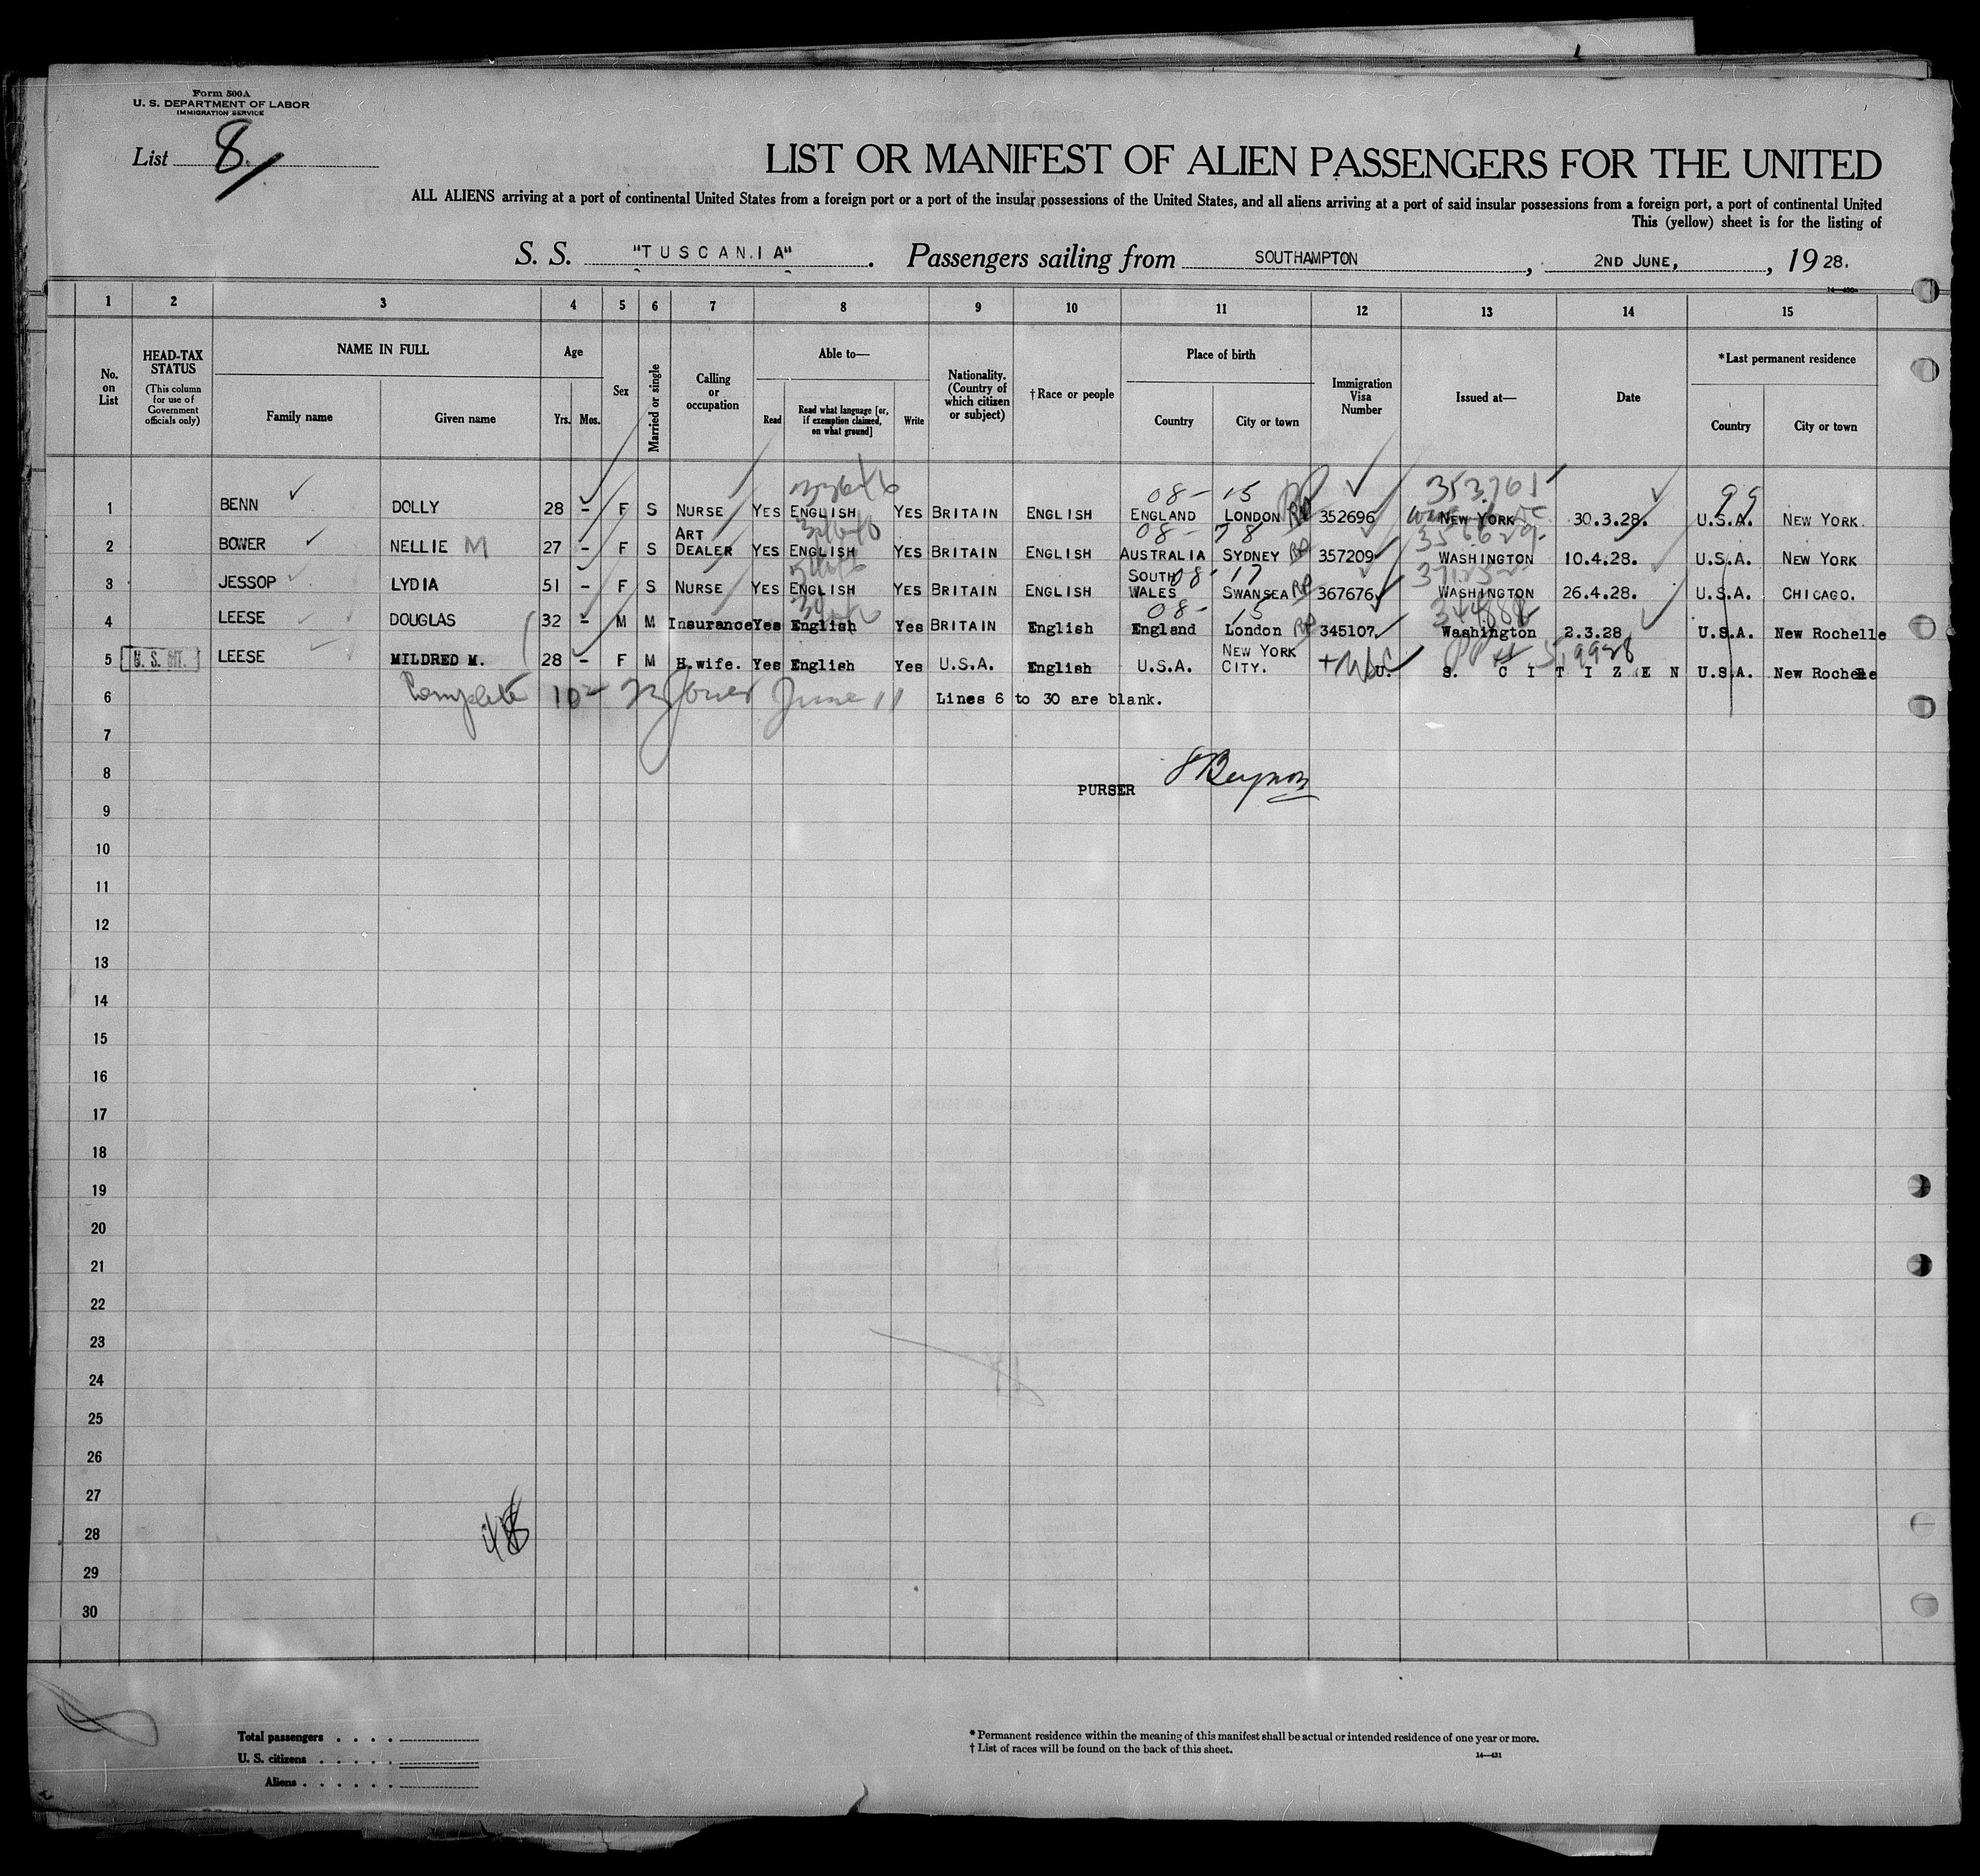 Form 500A
U. S. DEPARTMENT OF LABOR
IMMIGRATION SERVICE
List 8
LIST OR MANIFEST OF ALIEN PASSENGERS FOR THE UNITED
ALL ALIENS arriving at a port of continental United States from a foreign port or a port of the insular possessions of the United States, and all aliens arriving at a port of said insular possessions from a foreign port, a port of continental United
This (yellow) sheet is for the listing of
S. S. "TUSCANIA". Passengers sailing from SOUTHAMPTON, 2ND JUNE, , 19 28.
1 2 3 4 5 6 7 8 9 10 11 12 13 14 15
No. on List
HEAD-TAX STATUS (This column for use of Government officials only)
NAME IN FULL
Family name Given name
Age
Yrs. Mos.
Sex
Married or single
Calling or occupation
Able to—
Read Read what language [or, if exemption claimed, on what ground] Write
Nationality. (Country of which citizen or subject)
†Race or people
Place of birth
Country City or town
Immigration Visa Number
Issued at—
Date
*Last permanent residence
Country City or town
08- 15 353761 99
1 BENN DOLLY 28 - F S NURSE YES ENGLISH YES BRITAIN ENGLISH ENGLAND LONDON 352696 NEW YORK 30.3.28. U.S.A. NEW YORK.
08- 78
2 BOWER NELLIE M 27 - F S ART DEALER YES ENGLISH YES BRITAIN ENGLISH AUSTRALIA SYDNEY 357209 WASHINGTON 10.4.28. U.S.A. NEW YORK
08- 17
3 JESSOP LYDIA 51 - F S NURSE YES ENGLISH YES BRITAIN ENGLISH SOUTH WALES SWANSEA 367676 WASHINGTON 26.4.28. U.S.A. CHICAGO.
08- 15
4 LEESE DOUGLAS 32 - M M Insurance Yes English Yes BRITAIN English England London 345107 Washington 2.3.28 U.S.A. New Rochelle
5 U. S. CIT. LEESE MILDRED M. 28 - F M H.wife. Yes English Yes U.S.A. English U.S.A. NEW YORK CITY. U. S. CITIZEN U.S.A. New Rochelle
6 Complete 10 June 11 Lines 6 to 30 are blank.
7
8
PURSER
9
10
11
12
13
14
15
16
17
18
19
20
21
22
23
24
25
26
27
28
29
30
Total passengers . . . .
U. S. citizens . . . . .
Aliens . . . . . .
* Permanent residence within the meaning of this manifest shall be actual or intended residence of one year or more.
† List of races will be found on the back of this sheet.
14—431